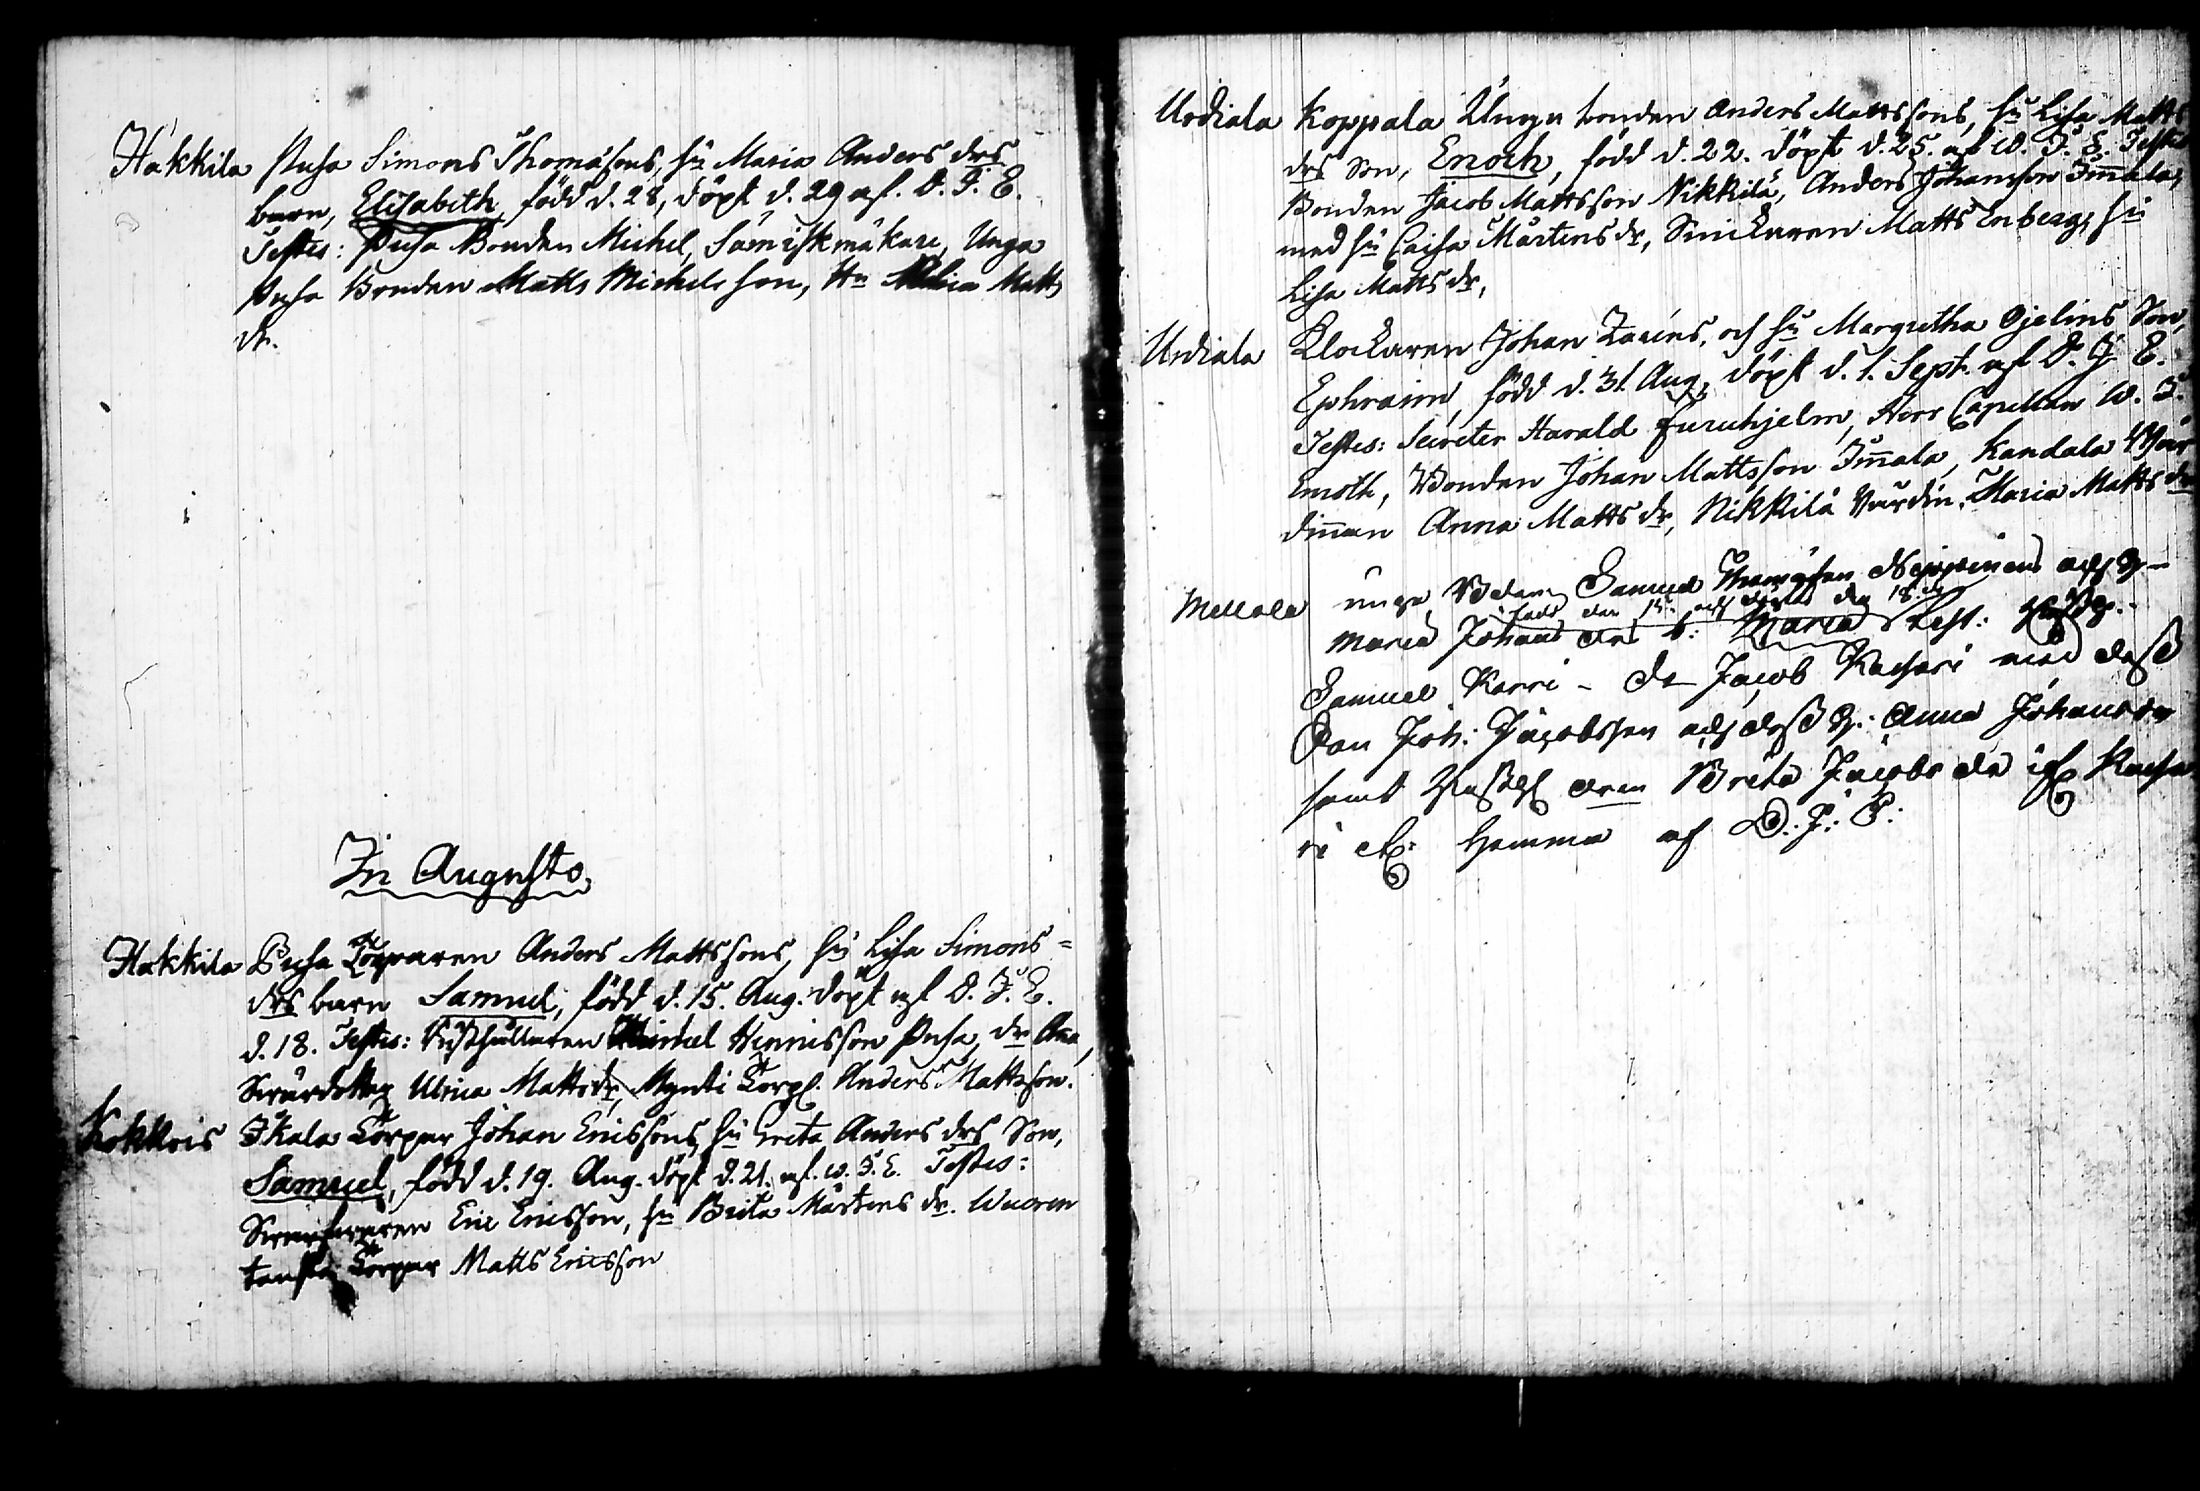 Hakkila Pusa Simons Thomasons, hu Maria Anders drs
barn, Elisabeth, född d. 28, döpt d. 29 af. D. J. E.
Testes: Pusa Bonden Michel, Sämiskmakare, Unga
Pusa Bonden Matts Michelsson, Hu Maria Matts
dr.
In Augusto.
Hakkila Pusa Torparen Anders Mattssons, hu Lisa Simons=
drs barn Samuel, född d. 15. Aug. döpt af D. J. E.
d. 18. Testes: Michel Hinrisson Pusa, dr
Ulrica Matts dr, Mynti Torp. Anders Mattsson.
Kokkois Ikala Torpar Johan Ericssons, hu Greta Anders drs Son,
Samuel, född d. 19. Aug. döpt d. 21. af. W. J. E. Testes:
Eric Ericsson, hu Brita Mårtens dr. Wuoren
Torpar Matts Ericsson
Urdiala Koppala Unga bonden Anders Mattssons, hu Lisa Matts
drs Son, Enoch, född d. 22. döpt d. 25. af W. J. E. Testes
Bonden Jacob Mattsson Nikkilä, Anders Johansson Im̄ala,
med hu Caisa Mårtens dr, Snickaren Matts Enberg, hu
Lisa Matts dr,
Urdiala Klockaren Johan Zaréns, och hu Margretha Gjelins Son,
Ephraim, född d. 31. Aug, döpt d. 1. Sept. af D. J. E.
Testes: Secreter Harald Furuhjelm, Herr Capellan W. J.
Enoth, Bonden Johan Mattsson Im̄ala, Kandala Wär
din̄an Anna Matts dr, Nikkilä Värdin. Maria Matts dr
Mellola unga Samuel Thomasson och h
född den 15: och döptes den 18 d.
Maria Johans dr b: Maria Test:
Samuel Karri - dr Jacob med dess
Son Joh: Jacobsson och dess h: Anna Johans dr
samt dren Brita Jacobs dr
ri hemma af D: J: E: